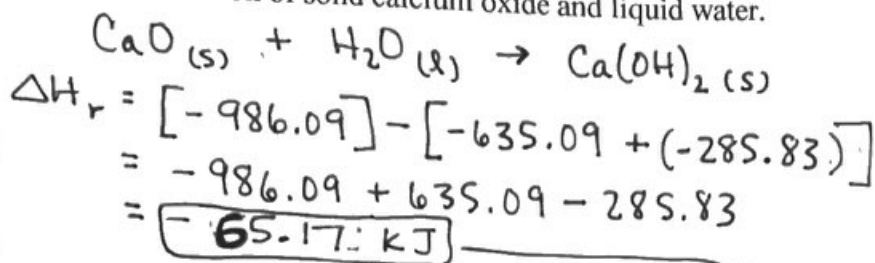 solid calcium oxide and liquid water.
CaO (s) + H₂O (l) → Ca(OH)₂ (s)
ΔHᵣ = [-986.09] - [-635.09 + (-285.83)]
= -986.09 + 635.09 - 285.83
= -65.17 kJ